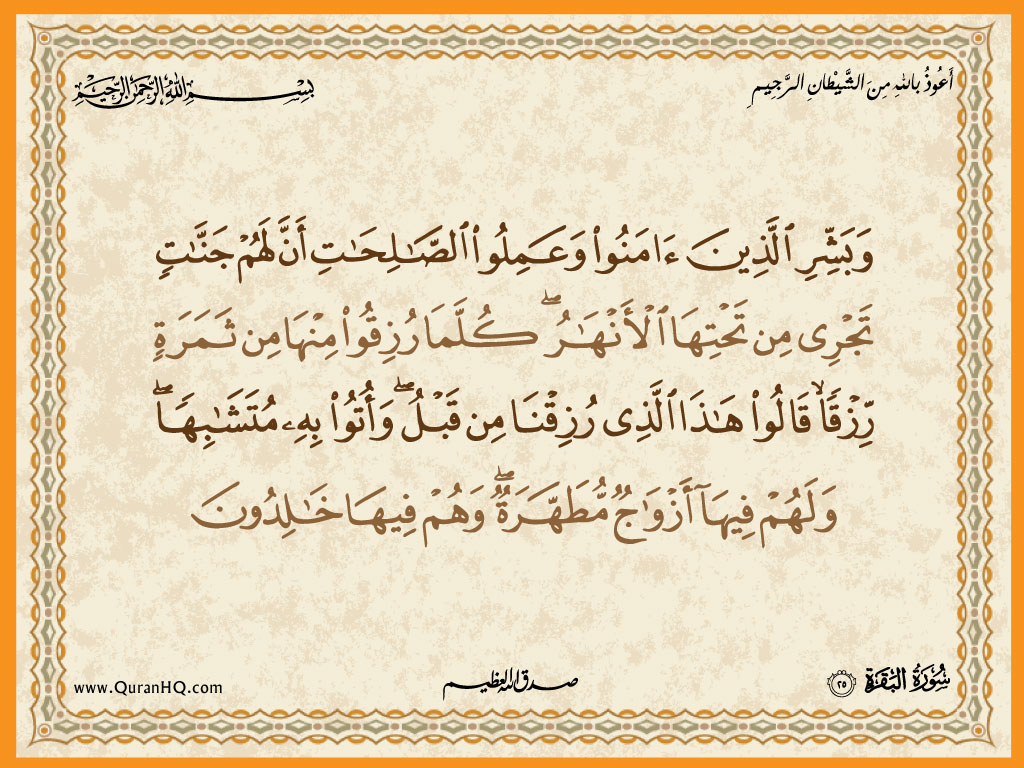 أَعُوذُ بِاللهِ مِنَ الشَّيْطَانِ الرَّجِيمِ
بِسْمِ اللهِ الرَّحْمٰنِ الرَّحِيمِ
وَبَشِّرِ ٱلَّذِينَ ءَامَنُوا۟ وَعَمِلُوا۟ ٱلصَّـٰلِحَـٰتِ أَنَّ لَهُمْ جَنَّـٰتٍ
تَجْرِى مِن تَحْتِهَا ٱلْأَنْهَـٰرُ ۖ كُلَّمَا رُزِقُوا۟ مِنْهَا مِن ثَمَرَةٍ
رِّزْقًا ۙ قَالُوا۟ هَـٰذَا ٱلَّذِى رُزِقْنَا مِن قَبْلُ ۖ وَأُتُوا۟ بِهِۦ مُتَشَـٰبِهًا ۖ
وَلَهُمْ فِيهَآ أَزْوَٰجٌ مُّطَهَّرَةٌ ۖ وَهُمْ فِيهَا خَـٰلِدُونَ
سُورَةُ الْبَقَرَةِ ٢٥
صدق الله العظيم
www.QuranHQ.com